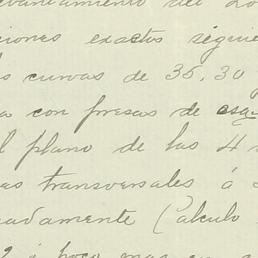 vantamiento del
ciones exactos siguie
s curvas de 35, 30 y
a con presas de esqu
l plano de las 4
as transversales á
adamente (Calculo
2 ó poco mas en